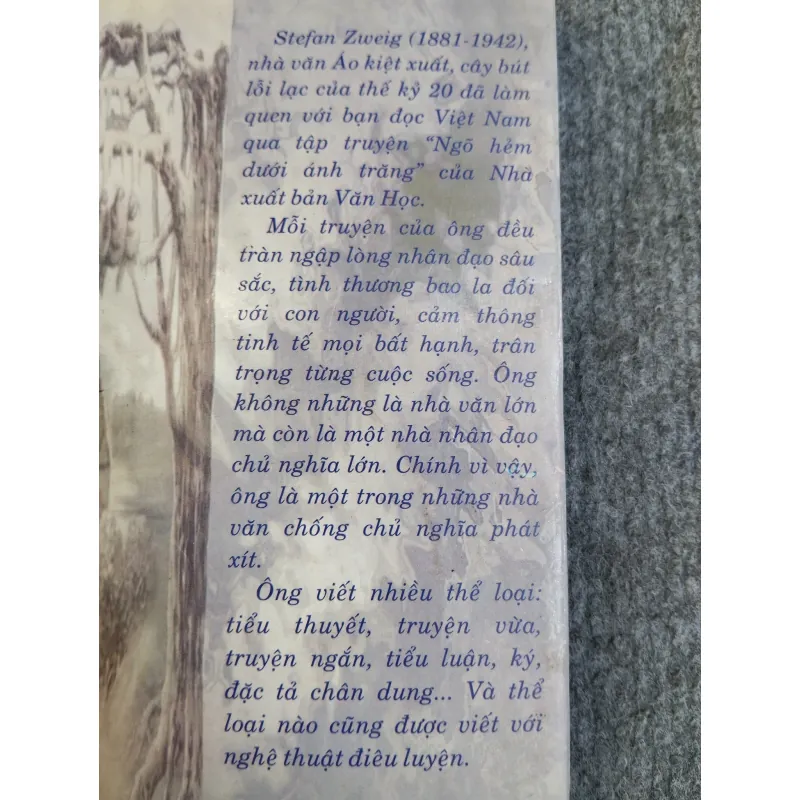 Stefan Zweig (1881-1942),
nhà văn Áo kiệt xuất, cây bút
lỗi lạc của thế kỷ 20 đã làm
quen với bạn đọc Việt Nam
qua tập truyện “Ngõ hẻm
dưới ánh trăng” của Nhà
xuất bản Văn Học.
Mỗi truyện của ông đều
tràn ngập lòng nhân đạo sâu
sắc, tình thương bao la đối
với con người, cảm thông
tinh tế mọi bất hạnh, trân
trọng từng cuộc sống. Ông
không những là nhà văn lớn
mà còn là một nhà nhân đạo
chủ nghĩa lớn. Chính vì vậy,
ông là một trong những nhà
văn chống chủ nghĩa phát
xít.
Ông viết nhiều thể loại:
tiểu thuyết, truyện vừa,
truyện ngắn, tiểu luận, ký,
đặc tả chân dung... Và thể
loại nào cũng được viết với
nghệ thuật điêu luyện.